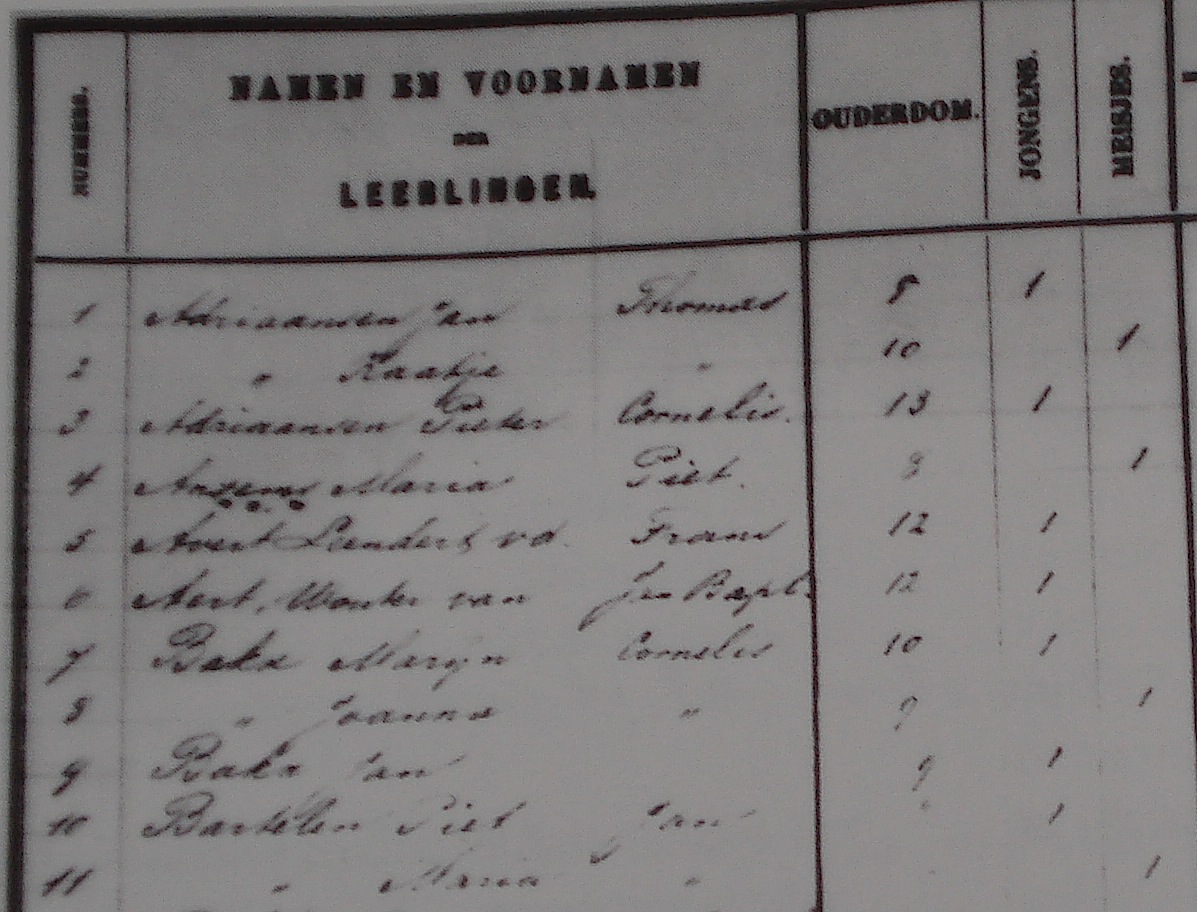 NUMMERS.
NAMEN EN VOORNAMEN
DER
LEERLINGEN.
OUDERDOM.
JONGENS.
MEISJES.
1 Adriaansen Jan Thomas 8 1
2 " Kaatje " 10 1
3 Adriaansen Pieter Cornelis. 13 1
4 Anssems Maria Piet. 8 1
5 Avert Leendert vd. Frans 12 1
6 Aert, Wouter van Jan Bapt. 12 1
7 Bakx Marijn Cornelis 10 1
8 " Joanna " 9 1
9 Bakx Jan 9 1
10 Bartelen Piet Jan 1
11 " Maria " 1